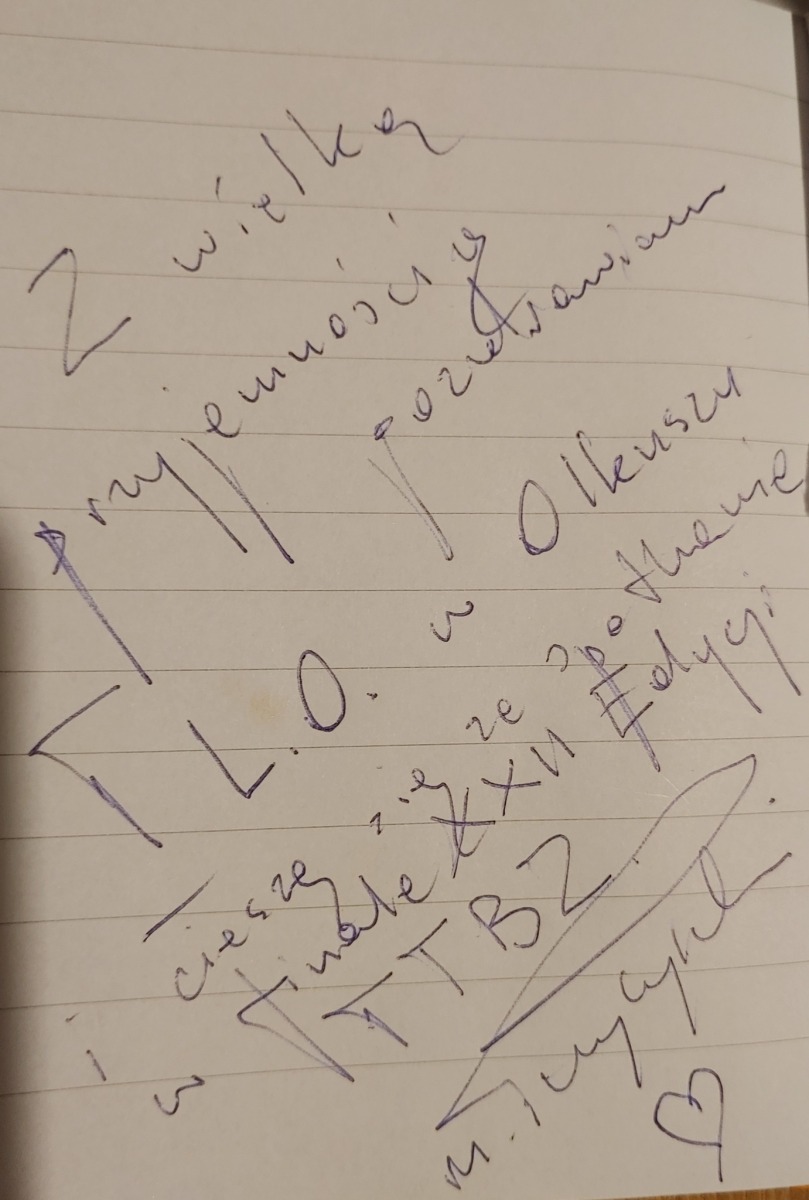 Z wielką
przyjemnością
pozdrawiam
I L.O. w Olkuszu
i cieszę się ze spotkania
w finale XXII Edycji
TTBZ
M.